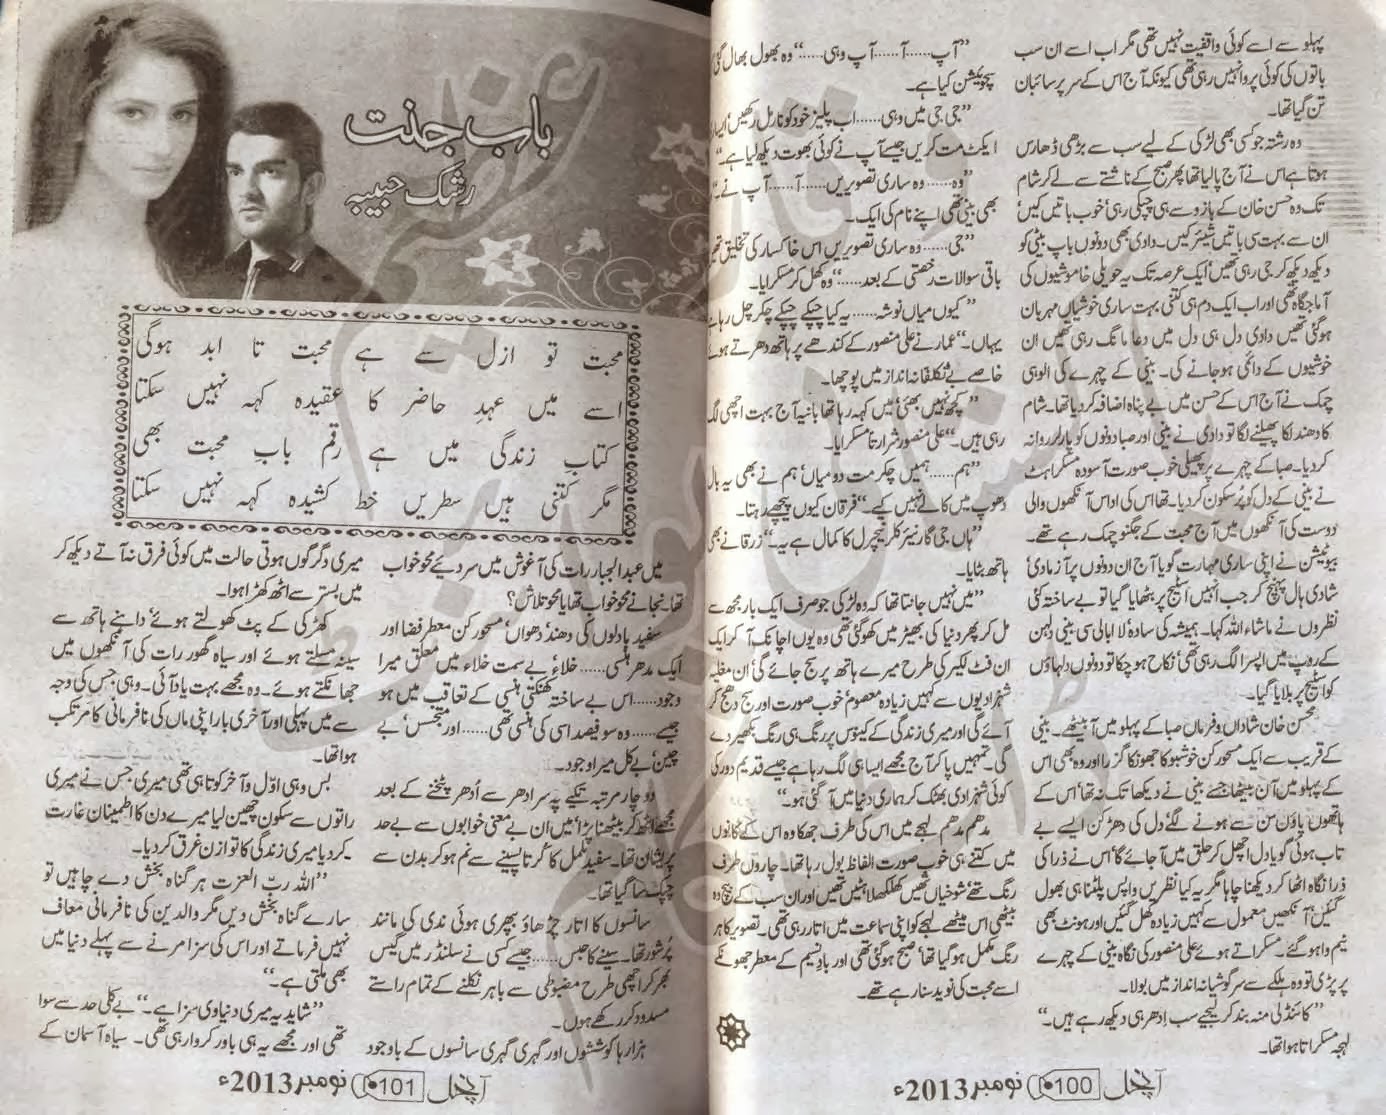 پہلو سے اسے کوئی واقفیت نہیں تھی مگر اب اسے ان سب
باتوں کی کوئی پروا نہیں رہی تھی کیونکہ آج اس کے سر پر سائبان
تن گیا تھا۔
وہ رشتہ جو کسی بھی لڑکی کے لیے سب سے بڑھی ڈھارس
ہوتا ہے اس نے آج پالیا تھا پھر صبح کے ناشتے سے لے کر شام
تک وہ حسن خان کے بازو سے ہی چپکی رہی، خوب باتیں کیں،
ان سے بہت سی باتیں شیئر کیں۔ دادی بھی دونوں باپ بیٹی کو
دیکھ دیکھ کر جی رہی تھیں، ایک عرصہ تک یہ حویلی خاموشیوں کی
آماجگاہ تھی اور اب ایک دم ہی کتنی بہت ساری خوشیاں مہربان
ہوگئی تھیں دادی دل ہی دل میں دعا مانگ رہی تھیں ان
خوشیوں کے دائمی ہوجانے کی۔ بینی کے چہرے کی الوہی
چمک نے آج اس کے حسن میں بے پناہ اضافہ کردیا تھا۔ شام
کا دھندلکا پھیلنے لگا تو دادی نے بینی اور صبا دونوں کو پارلر روانہ
کردیا۔ صبا کے چہرے پر پھیلی خوب صورت آسودہ مسکراہٹ
نے بینی کے دل کو پُرسکون کردیا۔ تھا اس کی اداس آنکھوں والی
دوست کی آنکھوں میں آج محبت کے جگنو چمک رہے تھے۔
بیوٹیشن نے اپنی ساری مہارت گویا آج ان دونوں پر آزمادی،
شادی ہال پہنچ کر جب انہیں اسٹیج پر بٹھایا گیا تو بے ساختہ کئی
نظروں نے ماشاء اللہ کہا۔ ہمیشہ کی سادہ، لاابالی سی بینی دلہن
کے روپ میں اپسرا لگ رہی تھی، نکاح ہوچکا تو دونوں دلہاؤں
کو اسٹیج پر بلایا گیا۔
محسن خان شاداں و فرماں صبا کے پہلو میں آبیٹھے۔ بینی
کے قریب سے ایک مسحور کن خوشبو کا جھونکا گزرا اور وہ بھی اس
کے پہلو میں آن بیٹھا جسے بینی نے دیکھا تک نہ تھا، اس کے
ہاتھوں پاؤں سن سے ہونے لگے، دل کی دھڑکن ایسے بے
تاب ہوئی گویا دل اچھل کر حلق میں آجائے گا، اس نے ذرا کی
ذرا نگاہ اٹھا کر دیکھنا چاہا مگر یہ کیا نظریں واپس پلٹنا ہی بھول
گئیں، آنکھیں معمول سے کہیں زیادہ کھل گئیں اور ہونٹ بھی
نیم وا ہوگئے۔ مسکراتے ہوئے علی منصور کی نگاہ بینی کے چہرے
پر پڑی تو وہ ہلکے سے سرگوشیانہ انداز میں بولا۔
”کائنڈلی منہ بند کرلیجیے سب ادھر ہی دیکھ رہے ہیں۔“
لہجہ مسکراتا ہوا تھا۔
”آپ......آ......آپ وہی......“ وہ بھول بھال گئی
سچویشن کیا ہے۔
”جی جی میں وہی......اب پلیز خود کو نارمل رکھیں،
ایکٹ مت کریں جیسے آپ نے کوئی بھوت دیکھ لیا ہے۔“
”وہ......وہ ساری تصویریں......آ......آپ نے۔“
بھی بینی تھی اپنے نام کی ایک۔
”جی......وہ ساری تصویریں اس خاکسار کی تخلیق تھیں
باقی سوالات رخصتی کے بعد......“ وہ کھل کر مسکرایا۔
”کیوں میاں نوشہ......یہ کیا چپکے چپکے چکر چل رہا ہے
یہاں۔“ عمار نے علی منصور کے کندھے پر ہاتھ دھرتے ہوئے
خاصے بے تکلفانہ انداز میں پوچھا۔
”کچھ نہیں بھئی، میں کہہ رہا تھا ہانیہ آج بہت اچھی لگ
رہی ہیں۔“ علی منصور شرارتاً مسکرایا۔
”ہم......ہمیں چکر مت دو میاں، ہم نے بھی یہ بال
دھوپ میں کالے نہیں کیے۔“ فرقان کیوں پیچھے رہتا۔
”ہاں جی گارنیئر کلر نیچرل کا کمال ہے یہ۔“ زرقا نے بھی
ہاتھ بٹایا۔
”میں نہیں جانتا تھا کہ وہ لڑکی جو صرف ایک بار مجھ سے
مل کر پھر دنیا کی بھیڑ میں کھوگئی تھی وہ یوں اچانک آکر ایک
ان مٹ لکیر کی طرح میرے ہاتھ پر سج جائے گی، ان مغلیہ
شہزادیوں سے کہیں زیادہ معصوم، خوب صورت اور سج دھج کر
آئے گی اور میری زندگی کے کینوس پر رنگ ہی رنگ بکھیر دے
گی۔ تمہیں پاکر آج مجھے ایسا ہی لگ رہا ہے جیسے قدیم دور کی
کوئی شہزادی بھٹک کر ہماری دنیا میں آگئی ہو۔“
مدھم مدھم لہجے میں اس کی طرف جھکا وہ اس کے کانوں
میں کتنے ہی خوب صورت الفاظ بول رہا تھا۔ چاروں طرف
رنگ تھے، شوخیاں تھیں، کھلکھلاہٹیں تھیں اور ان سب کے بیچ وہ
بیٹھی اس میٹھے لہجے کو اپنی سماعت میں اتار رہی تھی۔ تصویر کا ہر
رنگ مکمل ہوگیا تھا، صبح ہوگئی تھی اور بادِ نسیم کے معطر جھونکے
اسے محبت کی نوید سنا رہے تھے۔
آنچل 100 نومبر 2013ء
باب جنت
رشک حبیبہ
محبت تو ازل سے ہے محبت تا ابد ہوگی
اسے میں عہدِ حاضر کا عقیدہ کہہ نہیں سکتا
کتابِ زندگی میں ہے رقم باب محبت بھی
مگر کتنی ہیں سطریں خط کشیدہ کہہ نہیں سکتا
میں عبدالجبار رات کی آغوش میں سر دیئے محو خواب
تھا۔ نجانے محو خواب تھا یا محو تلاش؟
سفید بادلوں کی دھند، دھواں، مسحور کن معطر فضا اور
ایک مدھر ہنسی......خلاءِ بے سمت خلاء میں معلق میرا
وجود......اس بے ساختہ کھنکتی ہنسی کے تعاقب میں ہو
جیسے......وہ سو فیصد اسی کی ہنسی تھی......اور متجسس، بے
چین، بے کل میرا وجود۔
دو چار مرتبہ تکیے پہ سر ادھر سے اُدھر پٹخنے کے بعد
مجھے اٹھ کر بیٹھنا پڑا، میں ان بے معنی خوابوں سے بے حد
پریشان تھا۔ سفید ململ کا کُرتا پسینے سے نم ہوکر بدن سے
چپک سا گیا تھا۔
سانسوں کا اتار چڑھاؤ بپھری ہوئی ندی کی مانند
پُرشور تھا۔ سینے کا حبس......جیسے کسی نے سلنڈر میں گیس
بھر کر اچھی طرح مضبوطی سے باہر نکلنے کے تمام راستے
مسدود کر رکھے ہوں۔
ہزارہا کوششوں اور گہری گہری سانسوں کے باوجود
میری دگرگوں ہوتی حالت میں کوئی فرق نہ آتے دیکھ کر
میں بستر سے اٹھ کھڑا ہوا۔
کھڑکی کے پٹ کھولتے ہوئے، داہنے ہاتھ سے
سینہ مسلتے ہوئے اور سیاہ گھور رات کی آنکھوں میں
جھانکتے ہوئے۔ وہ مجھے بہت یاد آئی۔ وہی جس کی وجہ
سے میں پہلی اور آخری بار اپنی ماں کی نافرمانی کا مرتکب
ہوا تھا۔
بس وہی اوّل و آخر کوتاہی تھی میری جس نے میری
راتوں سے سکون چھین لیا میرے دن کا اطمینان غارت
کردیا میری زندگی کا توازن غرق کردیا۔
”اللہ ربّ العزت ہر گناہ بخش دے چاہیں تو
سارے گناہ بخش دیں مگر والدین کی نافرمانی معاف
نہیں فرماتے اور اس کی سزا مرنے سے پہلے دنیا میں
بھی ملتی ہے۔“
”شاید یہ میری دنیاوی سزا ہے۔“ بے کلی حد سے سوا
تھی اور مجھے یہ ہی باور کروا رہی تھی۔ سیاہ آسمان کے
آنچل 101 نومبر 2013ء